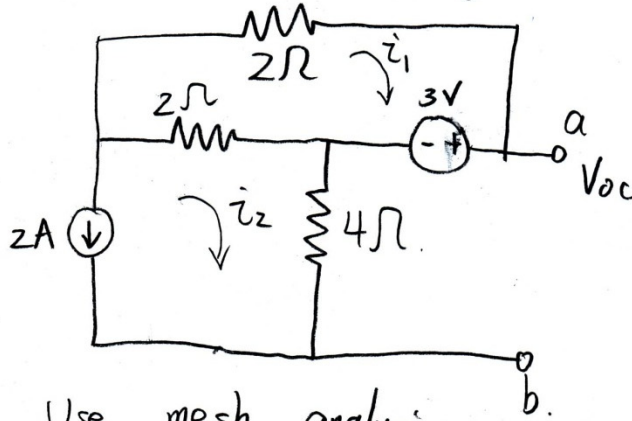 2Ω
i₁
2Ω
3V
- +
a
Voc
2A
i₂
4Ω.
b.
Use mesh